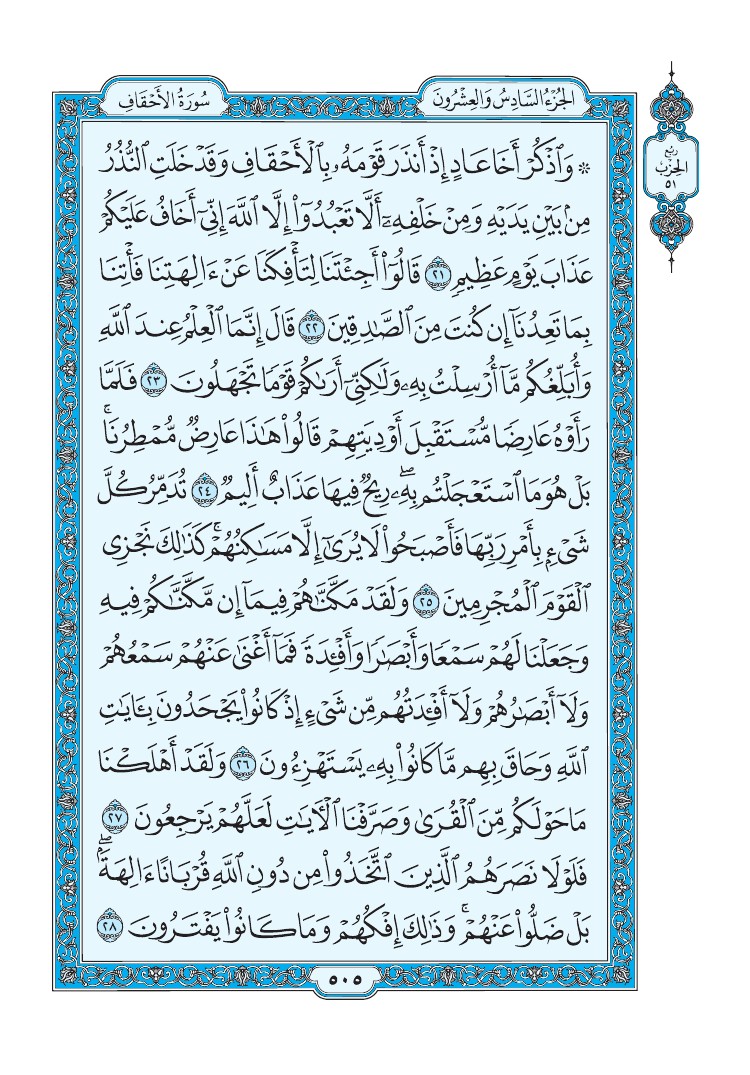 الجُزْءُ السَّادِسُ وَالعِشْرُونَ
سُورَةُ الأَحْقَافِ
ربع
الحِزب
٥١
۞ وَٱذْكُرْ أَخَا عَادٍ إِذْ أَنذَرَ قَوْمَهُۥ بِٱلْأَحْقَافِ وَقَدْ خَلَتِ ٱلنُّذُرُ
مِنۢ بَيْنِ يَدَيْهِ وَمِنْ خَلْفِهِۦٓ أَلَّا تَعْبُدُوٓا۟ إِلَّا ٱللَّهَ إِنِّىٓ أَخَافُ عَلَيْكُمْ
عَذَابَ يَوْمٍ عَظِيمٍ ٢١ قَالُوٓا۟ أَجِئْتَنَا لِتَأْفِكَنَا عَنْ ءَالِهَتِنَا فَأْتِنَا
بِمَا تَعِدُنَآ إِن كُنتَ مِنَ ٱلصَّـٰدِقِينَ ٢٢ قَالَ إِنَّمَا ٱلْعِلْمُ عِندَ ٱللَّهِ
وَأُبَلِّغُكُم مَّآ أُرْسِلْتُ بِهِۦ وَلَـٰكِنِّىٓ أَرَىٰكُمْ قَوْمًا تَجْهَلُونَ ٢٣ فَلَمَّا
رَأَوْهُ عَارِضًا مُّسْتَقْبِلَ أَوْدِيَتِهِمْ قَالُوا۟ هَـٰذَا عَارِضٌ مُّمْطِرُنَا ۚ
بَلْ هُوَ مَا ٱسْتَعْجَلْتُم بِهِۦ ۖ رِيحٌ فِيهَا عَذَابٌ أَلِيمٌ ٢٤ تُدَمِّرُ كُلَّ
شَىْءٍۭ بِأَمْرِ رَبِّهَا فَأَصْبَحُوا۟ لَا يُرَىٰٓ إِلَّا مَسَـٰكِنُهُمْ ۚ كَذَٰلِكَ نَجْزِى
ٱلْقَوْمَ ٱلْمُجْرِمِينَ ٢٥ وَلَقَدْ مَكَّنَّـٰهُمْ فِيمَآ إِن مَّكَّنَّـٰكُمْ فِيهِ
وَجَعَلْنَا لَهُمْ سَمْعًا وَأَبْصَـٰرًا وَأَفْـِٔدَةً فَمَآ أَغْنَىٰ عَنْهُمْ سَمْعُهُمْ
وَلَآ أَبْصَـٰرُهُمْ وَلَآ أَفْـِٔدَتُهُم مِّن شَىْءٍ إِذْ كَانُوا۟ يَجْحَدُونَ بِـَٔايَـٰتِ
ٱللَّهِ وَحَاقَ بِهِم مَّا كَانُوا۟ بِهِۦ يَسْتَهْزِءُونَ ٢٦ وَلَقَدْ أَهْلَكْنَا
مَا حَوْلَكُم مِّنَ ٱلْقُرَىٰ وَصَرَّفْنَا ٱلْـَٔايَـٰتِ لَعَلَّهُمْ يَرْجِعُونَ ٢٧
فَلَوْلَا نَصَرَهُمُ ٱلَّذِينَ ٱتَّخَذُوا۟ مِن دُونِ ٱللَّهِ قُرْبَانًا ءَالِهَةًۢ ۖ
بَلْ ضَلُّوا۟ عَنْهُمْ ۚ وَذَٰلِكَ إِفْكُهُمْ وَمَا كَانُوا۟ يَفْتَرُونَ ٢٨
٥٠٥